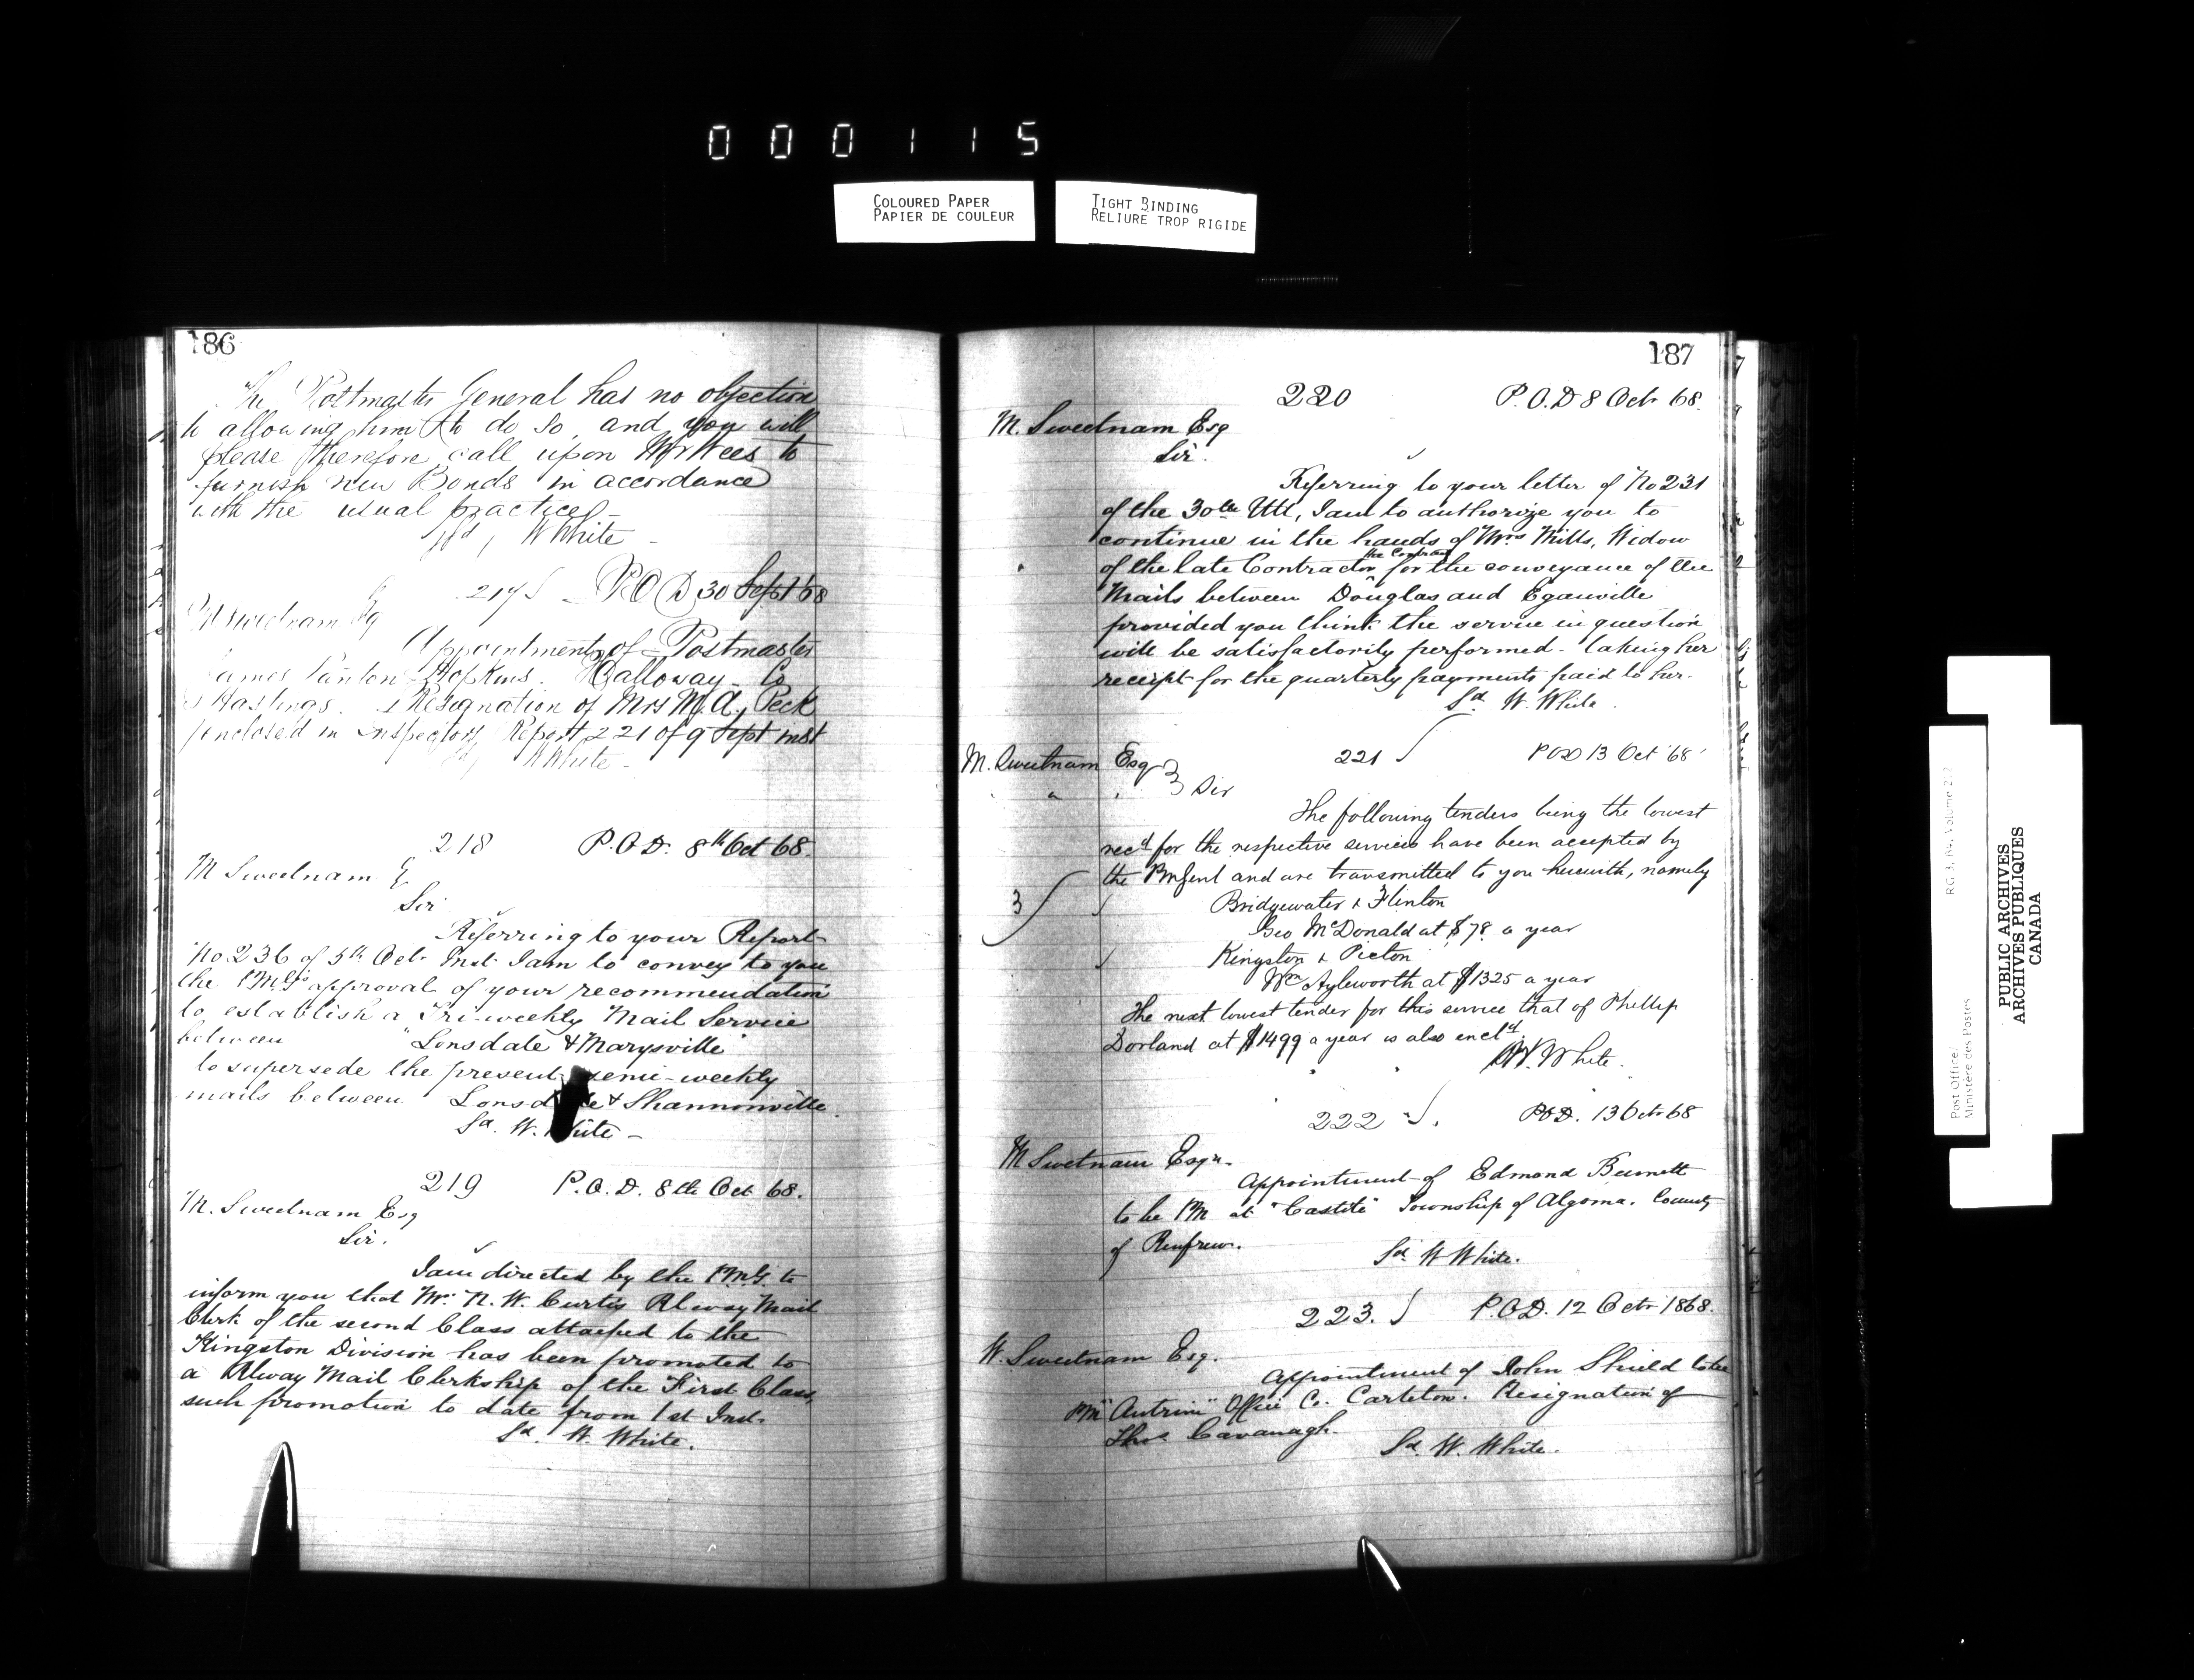 000115
COLOURED PAPER
PAPIER DE COULEUR
TIGHT BINDING
RELIURE TROP RIGIDE
186
The Postmaster General has no objection
to allowing him to do so, and you will
please therefore call upon Mr Wees to
furnish new Bonds in accordance
with the usual practice
Sd, W White -
217 - P O D 30 Sept 68
M Sweetnam Esq
Appointment of Postmaster
James Panton Hopkins. Galloway - Co
Hastings. Resignation of Mrs M. A. Peck
enclosed in Inspectors Report 221 of 9 Sept inst
W White -
218 P.O.D. 8th Oct 68.
M Sweetnam E
Sir
Referring to your Report
No 236 of 5th Oct Inst I am to convey to you
the P.M.G's approval of your recommendation
to establish a Tri-weekly Mail Service
between "Lonsdale & Marysville"
to supersede the present semi-weekly
mails between Lonsdale & Shannonville.
Sd. W. White -
219 P.O.D. 8th Oct 68.
M. Sweetnam Esq
Sir.
I am directed by the P.M.G. to
inform you that Mr. N. W. Curtis Rlway Mail
Clerk of the second Class attached to the
Kingston Division has been promoted to
a Rlway Mail Clerkship of the First Class,
such promotion to date from 1st Inst.
Sd. W. White.
187
220 P.O.D 8 Oct 68.
M. Sweetnam Esq
Sir.
Referring to your letter of No 231
of the 30th Ult, I am to authorize you to
continue in the hands of Mrs Mills, Widow
of the late Contractor the Contract for the conveyance of the
Mails between Douglas and Eganville
provided you think the service in question
will be satisfactorily performed - taking her
receipt for the quarterly payments paid to her.
Sd W. White.
221 POD 13 Oct 68
M. Sweetnam Esq
Sir
The following tenders being the lowest
recd for the respective services have been accepted by
the PmGenl and are transmitted to you herewith, namely
3
Bridgewater & Flinton
Geo McDonald at $78 a year
Kingston & Picton
Wm Ayleworth at $1325 a year
The next lowest tender for this service that of Phillip
Dorland at $1499 a year is also encld.
W. White.
222 POD. 13 Oct 68
M Sweetnam Esqr.
Appointment of Edmond Bennett
to be PM at "Castile" Township of Algoma. County
of Renfrew.
Sd. W White.
223. P.O.D. 12 Oct 1868.
W. Sweetnam Esq.
Appointment of John Shield to be
PM "Antrim" Office Co. Carleton. Resignation of
Thos Cavanagh.
Sd. W. White.
Post Office/
Ministère des Postes
RG 3, B4, Volume 212
PUBLIC ARCHIVES
ARCHIVES PUBLIQUES
CANADA